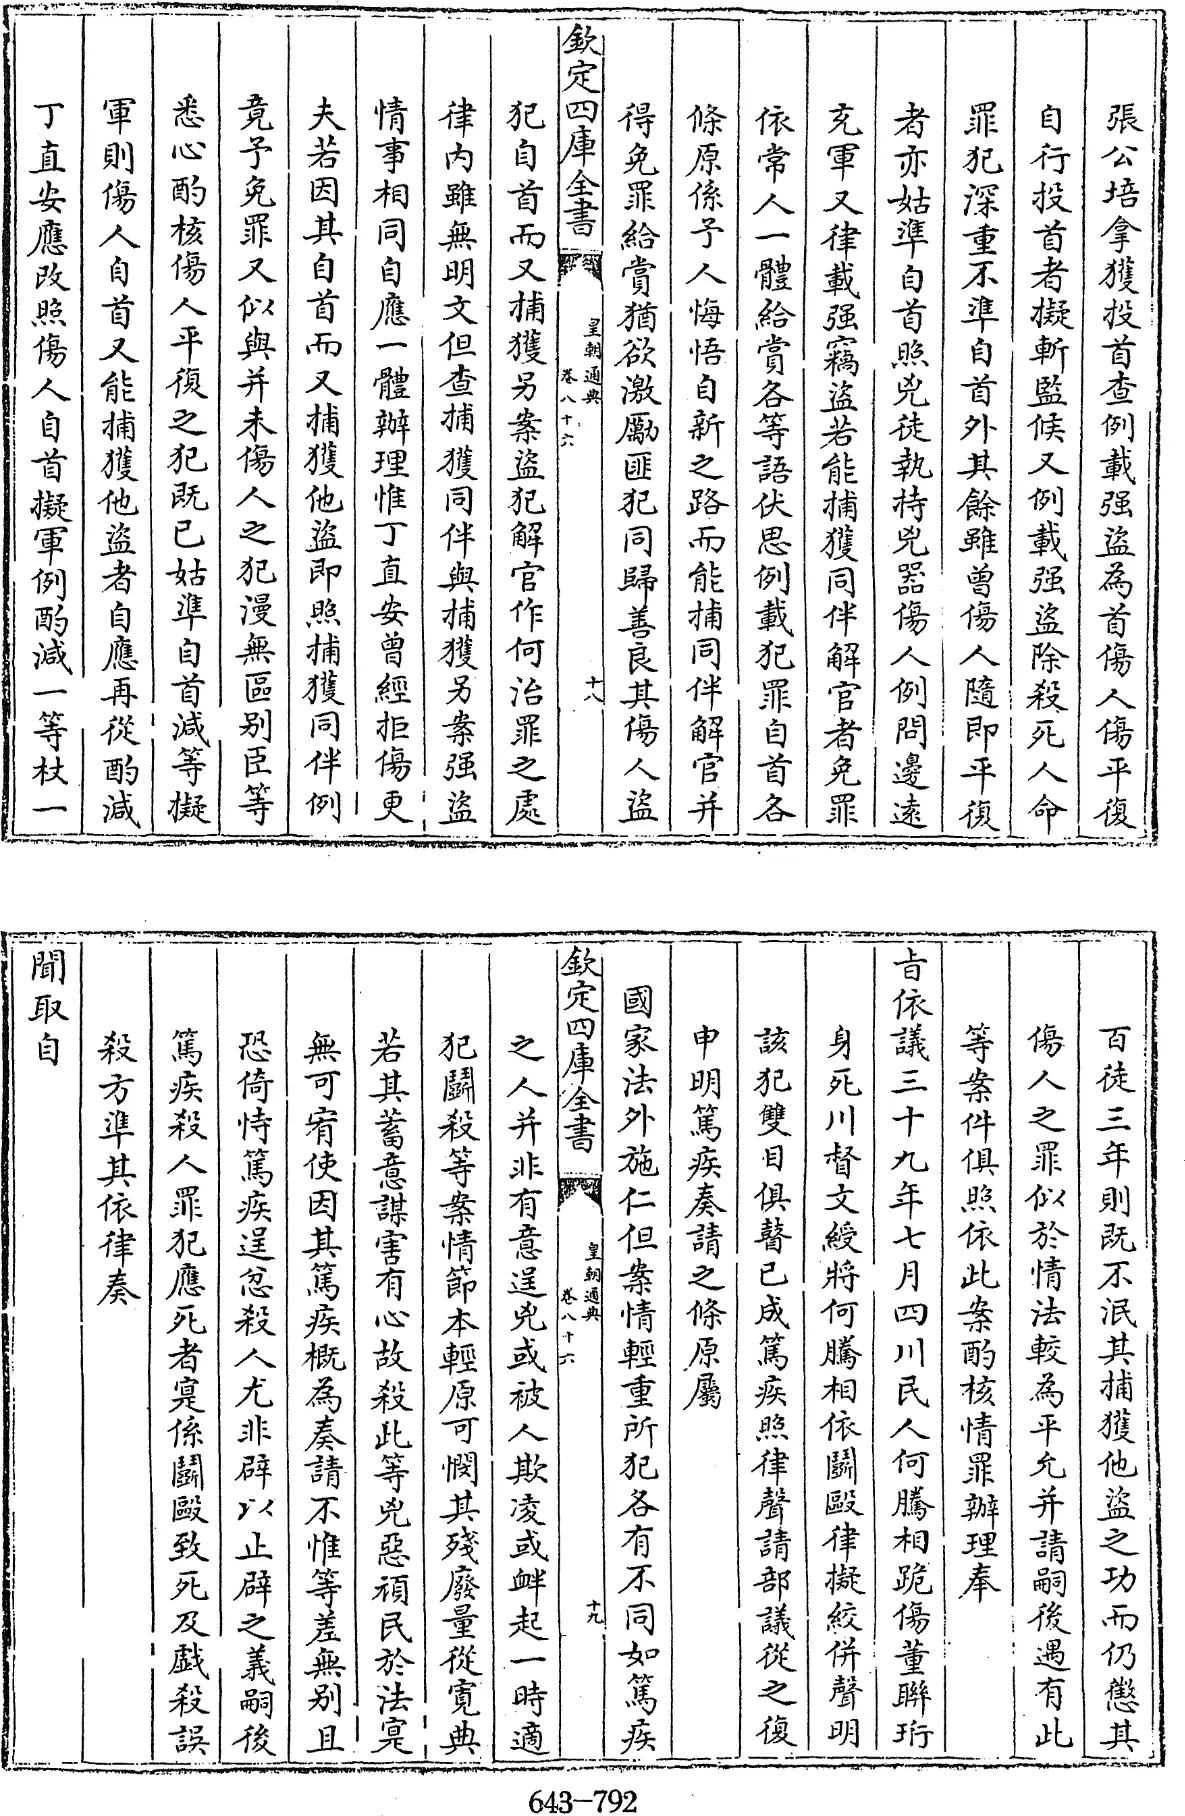 張公培拿獲投首查例載强盜為首傷人傷平復
自行投首者擬斬監候又例載强盜除殺死人命
罪犯深重不準自首外其餘雖曾傷人隨即平復
者亦姑準自首照兇徒執持兇器傷人例問邊遠
充軍又律載强竊盜若能捕獲同伴解官者免罪
依常人一體給賞各等語伏思例載犯罪自首各
條原係予人悔悟自新之路而能捕同伴解官并
得免罪給賞猶欲激勵匪犯同歸善良其傷人盜
欽定四庫全書
皇朝通典
卷八十六
十八
犯自首而又捕獲另案盜犯解官作何治罪之處
律内雖無明文但查捕獲同伴與捕獲另案强盜
情事相同自應一體辦理惟丁直安曾經拒傷更
夫若因其自首而又捕獲他盜即照捕獲同伴例
竟予免罪又似與并未傷人之犯漫無區别臣等
悉心酌核傷人平復之犯既已姑準自首減等擬
軍則傷人自首又能捕獲他盜者自應再從酌減
丁直安應改照傷人自首擬軍例酌減一等杖一
百徒三年則既不泯其捕獲他盜之功而仍懲其
傷人之罪似於情法較為平允并請嗣後遇有此
等案件俱照依此案酌核情罪辦理奉
旨依議三十九年七月四川民人何騰相跪傷董聯珩
身死川督文綬將何騰相依鬭毆律擬絞併聲明
該犯雙目俱瞽已成篤疾照律聲請部議從之復
申明篤疾奏請之條原屬
國家法外施仁但案情輕重所犯各有不同如篤疾
欽定四庫全書
皇朝通典
卷八十六
十九
之人并非有意逞兇或被人欺凌或衅起一時適
犯鬭殺等案情節本輕原可憫其殘廢量從寛典
若其蓄意謀害有心故殺此等兇惡頑民於法寔
無可宥使因其篤疾概為奏請不惟等差無别且
恐倚恃篤疾逞忿殺人尤非辟以止辟之義嗣後
篤疾殺人罪犯應死者寔係鬭毆致死及戯殺誤
殺方準其依律奏
聞取自
643-792